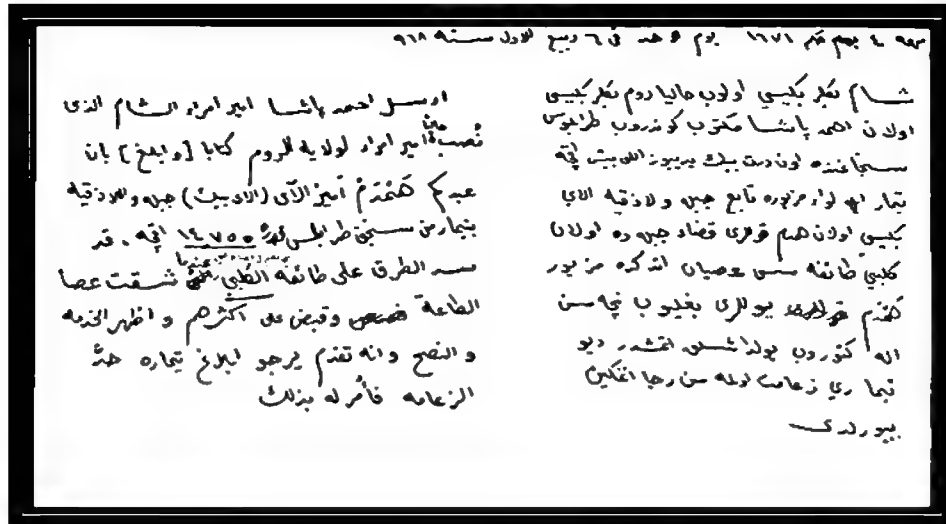 ٤ مهم نمر ١٦٧١ يوم الاحد في ٦ ربيع الاول سنه ٩٦٨
شام بكلر بكيسي اولوب حاليا روم بكلر بكيسي
اولان احمد پاشا مكتوب كوندروب طرابلوس
سنجاغنده اون درت بيك يديوز اللى بيش اقچه
تيمار ايله لواء مزبوره تابع جبله ولاذقيه الاي
بكيسي اولان قضاء جبله ده اولان
كلبي طائفه سى عصيان اتدكده مزبور
يوللرى بغليوب نيجه سن
اله كتوروب يولداشلق اتمشدر ديو
تيمارى زعامت اوله سن رجا اتمكين
بيورلدى
ارسل احمد پاشا امير امراء الشام الذى
نصب حاليا امير امراء لولاية الروم كتابا [وابلغ] بان
عبدكم امير الآى (الاى بيك) جبله واللاذقيه
بتيمار من سنجق طرابلس قدره ١٤٧٥٥ اقچه ، قد
سد الطرق على طائفه الكلبى عندما شقت عصا
الطاعة وقبض على اكثرهم و اظهر الخدمه
و النصح وانه تقدم يرجو ابلاغ تيماره حد
الزعامه فأمر له بذلك